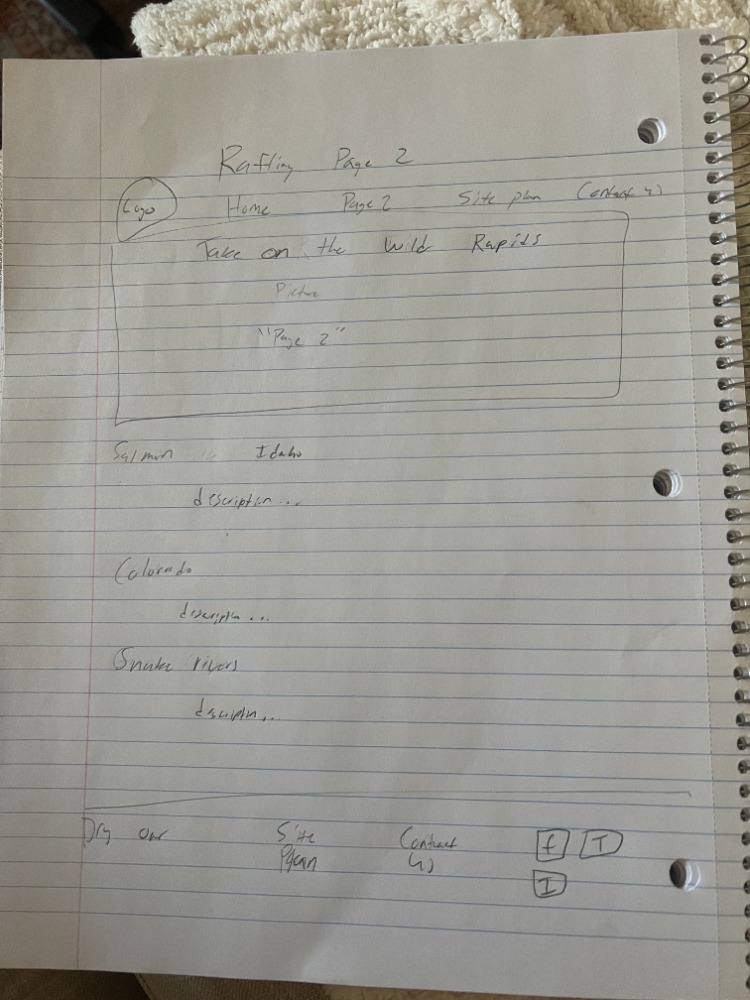 Rafting Page 2
Logo Home Page 2 Site plan Contact us
Take on the Wild Rapids
Picture
"Page 2"
Salmon Idaho
description...
Colorado
description...
Snake rivers
description...
Dry oar Site Plan Contact us f T
I